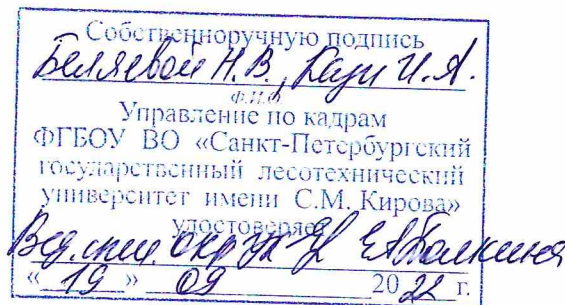 Собственноручную подпись
Беляевой Н.В., Кази И.А.
Ф.И.О.
Управление по кадрам
ФГБОУ ВО «Санкт-Петербургский
государственный лесотехнический
университет имени С.М. Кирова»
удостоверяет
Вед. спец.
«19» 09 2022 г.